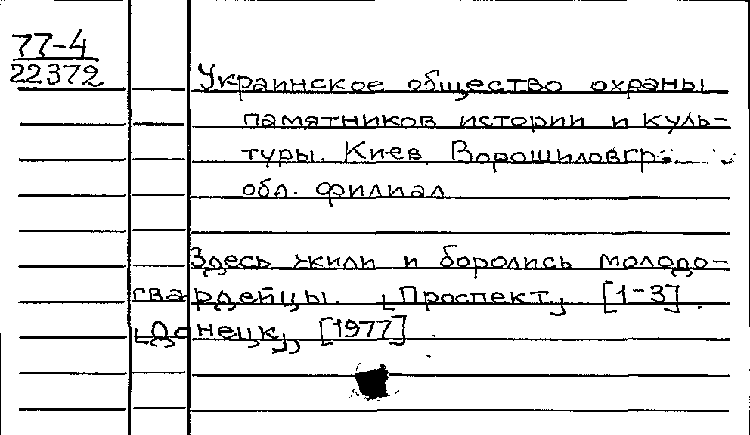 77-4
22372
Украинское общество охраны
памятников истории и куль-
туры. Киев. Ворошиловгр.
обл. филиал
Здесь жили и боролись молодо-
гвардейцы. [Проспект] [1-3].
[Донецк], [1977]